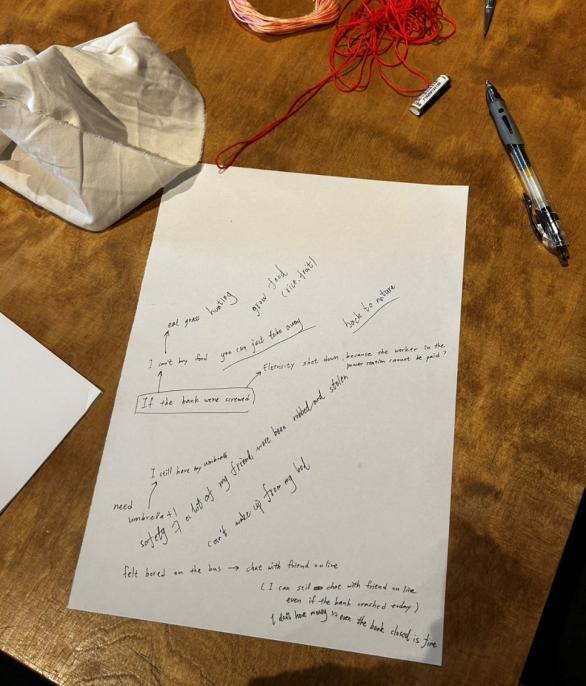 eat grass
hunting
grow food
(rice. fruit)
back to nature
I can't buy food
you can just take away
Elernicity shut down, because the worker in the
power reation cannot be paid?
If the bank were screwed
I still have my umbrella
need
umbrella+1
safety
a lot of my friend more been robbed and stolen
can't wake up from my bed
felt bored on the bus → chat with friend on line
(I can still chat with friend on line
even if the bank crached today)
I don't have money so even the bank closed is fine